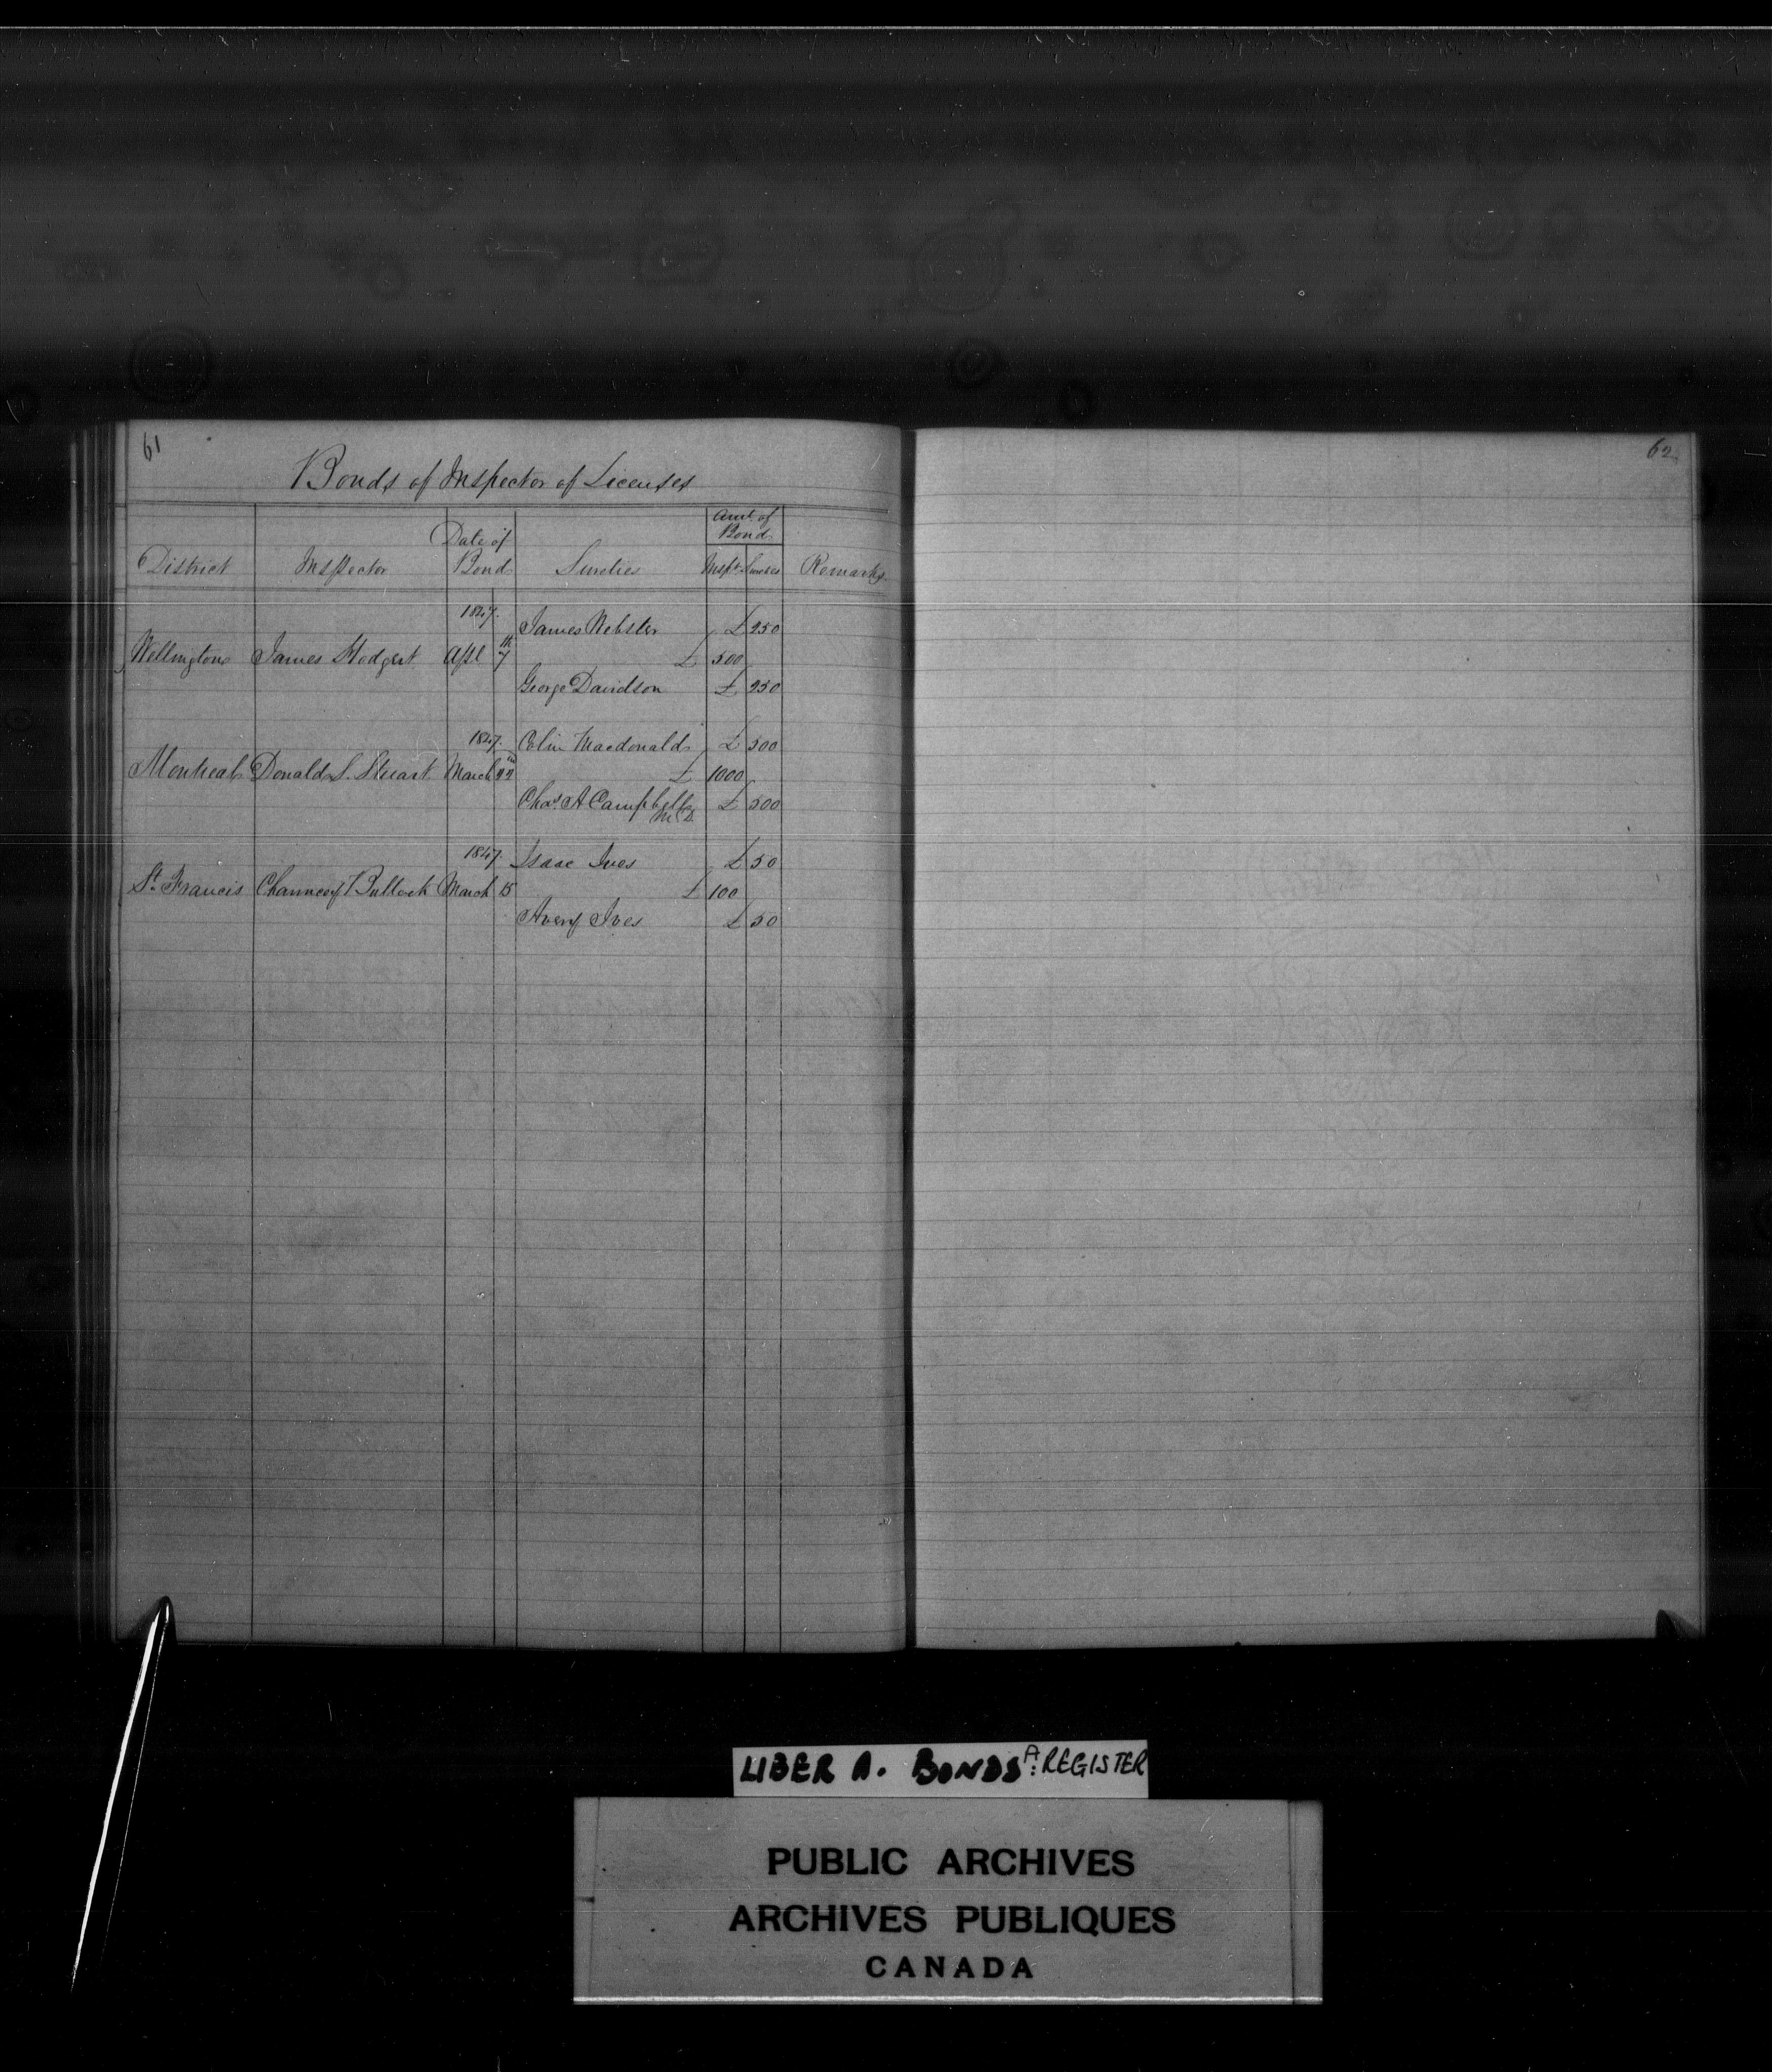 61
Bonds of Inspector of Licenses
District Inspector Date of Bond Sureties Amt. of Bond Inspr. Sureties Remarks
1847. James Webster £ 250
Wellington James Hodgert Apl 7th £ 500
George Davidson £ 250
1847. Colin Macdonald £ 500
Montreal Donald S. Stuart March £ 1000
Chas. A Campbell M.D. £ 500
1847. Isaac Ives £ 50
St. Francis Chauncey Bullock March 15 £ 100
Avery Ives £ 50
62
LIBER A. BONDS: A REGISTER
PUBLIC ARCHIVES
ARCHIVES PUBLIQUES
CANADA